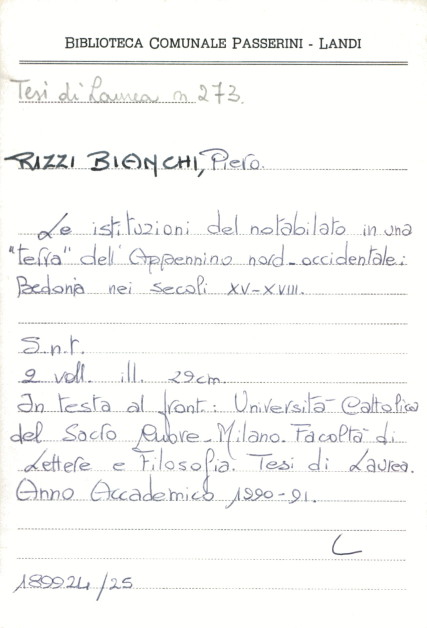 BIBLIOTECA COMUNALE PASSERINI - LANDI
Tesi di Laurea n 273.
RIZZI BIANCHI, Piero.
Le istituzioni del notabilato in una
"terra" dell'Appennino nord-occidentale:
Bedonia nei secoli XV-XVIII.
S.n.t.
2 voll. ill. 29cm.
In testa al front.: Università Cattolica
del Sacro Cuore-Milano. Facoltà di
Lettere e Filosofia. Tesi di Laurea.
Anno Accademico 1990-91.
L
189924/25